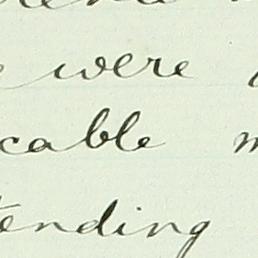 were
cable
tending